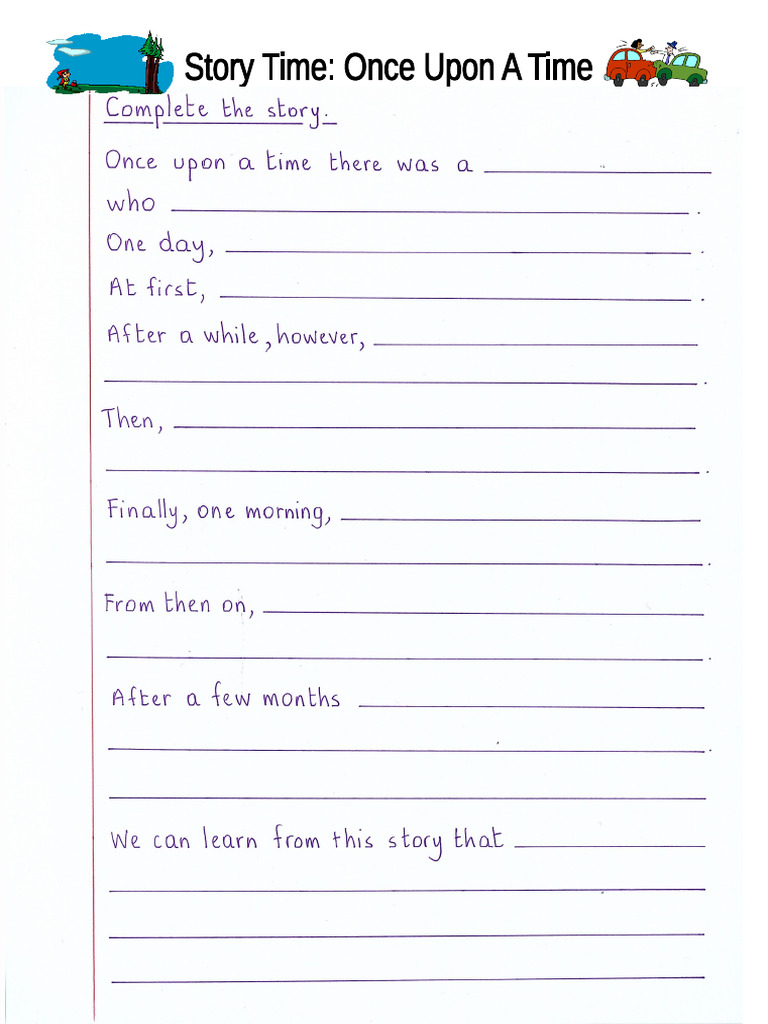 Story Time: Once Upon A Time
Complete the story.
Once upon a time there was a
who .
One day, .
At first, .
After a while, however,
.
Then,
.
Finally, one morning,
.
From then on,
.
After a few months
.
We can learn from this story that